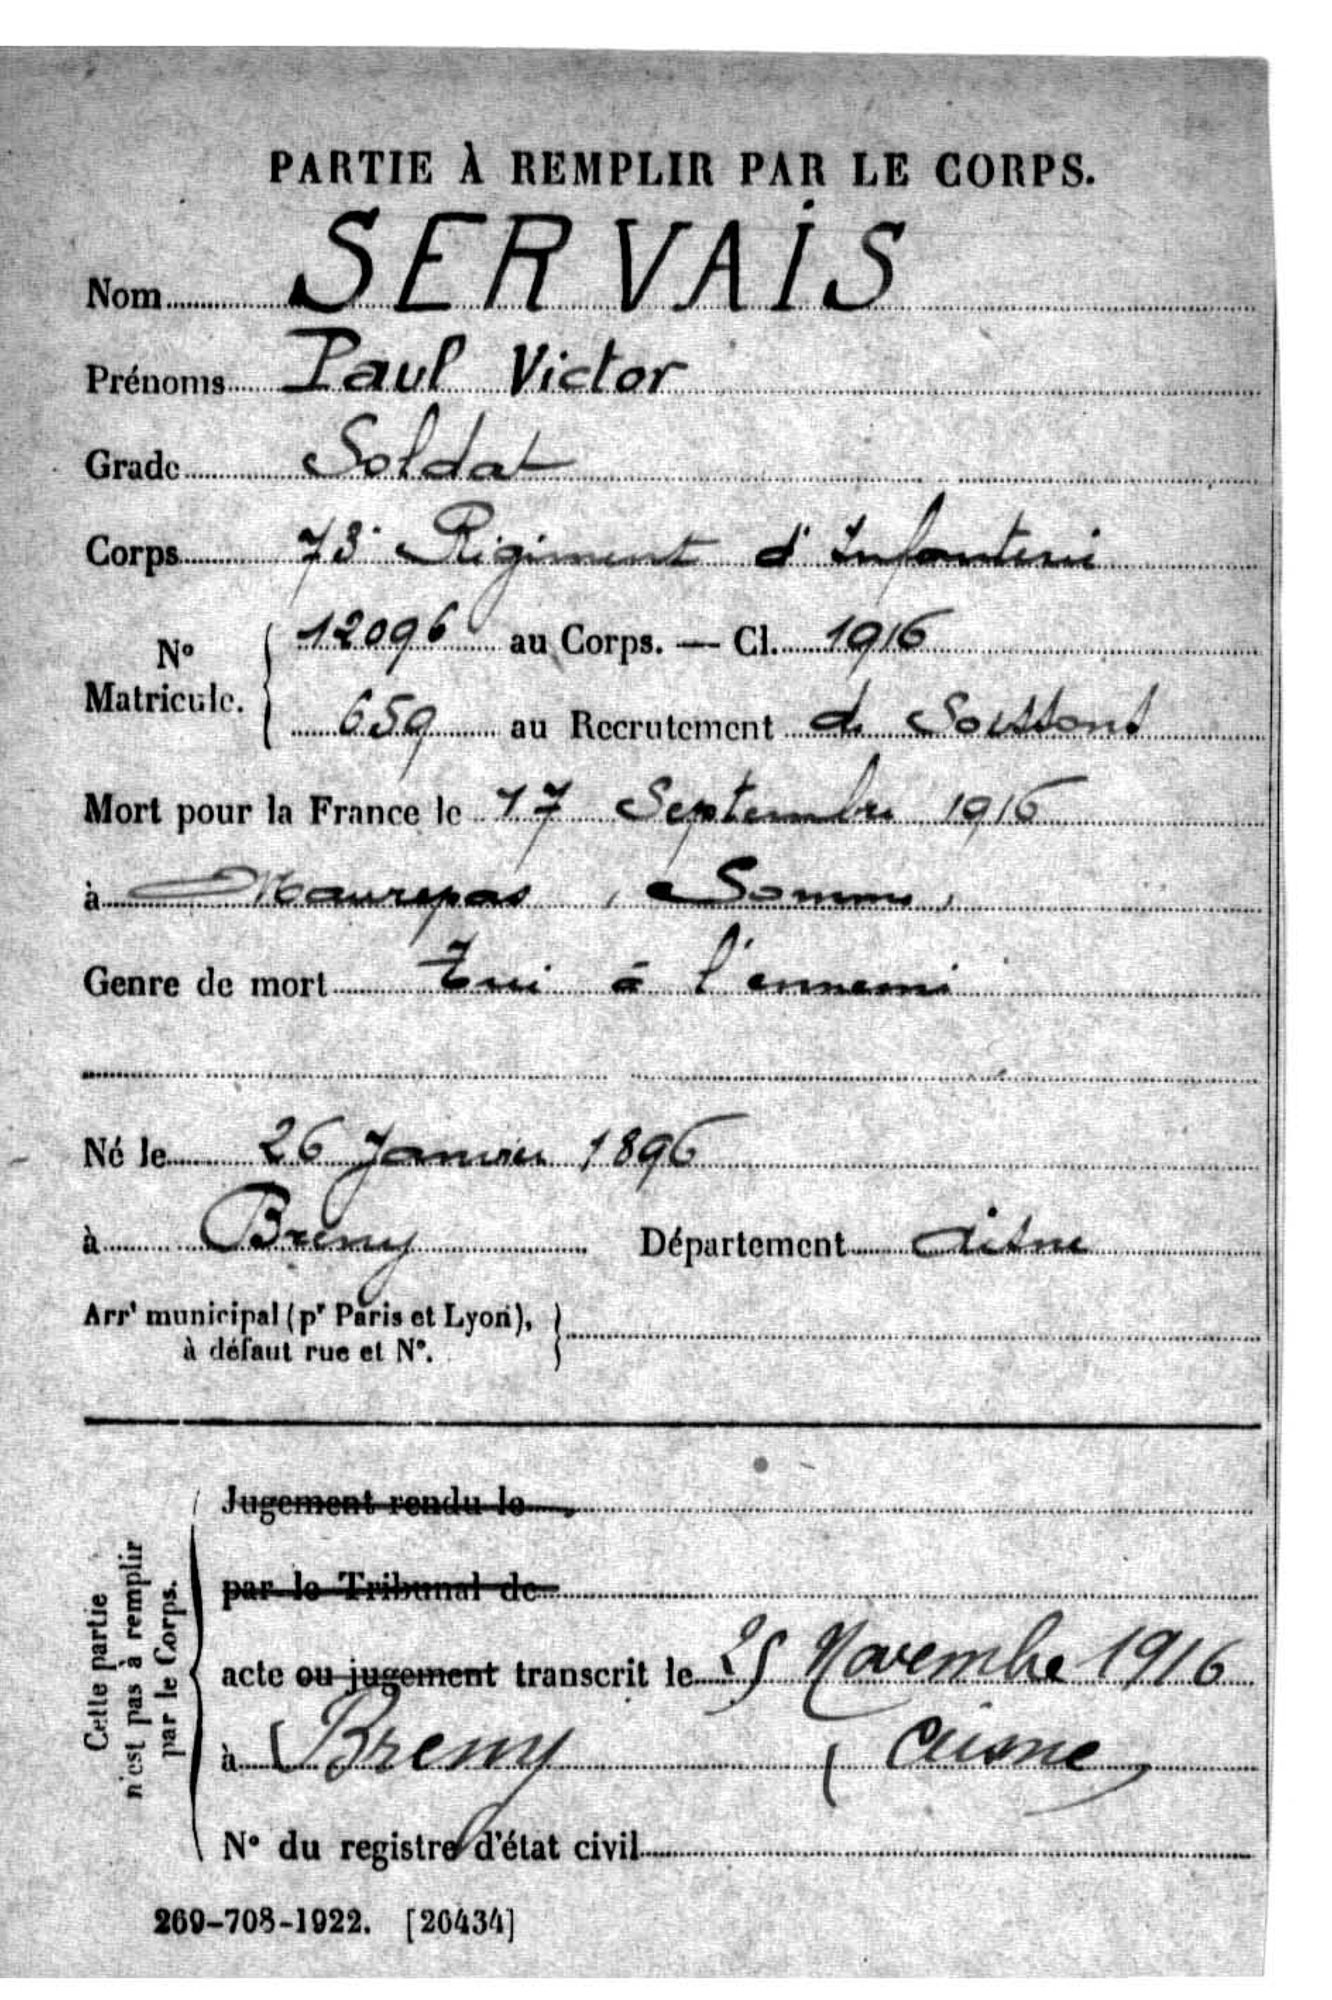 PARTIE À REMPLIR PAR LE CORPS.
Nom SERVAIS
Prénoms Paul Victor
Grade Soldat
Corps 73e Régiment d'Infanterie
N° Matricule. 12096 au Corps. — Cl. 1916
659 au Recrutement de Soissons
Mort pour la France le 17 Septembre 1916
à Maurepas (Somme)
Genre de mort Tué à l'ennemi
Né le 26 Janvier 1896
à Breny Département Aisne
Arrt municipal (pr Paris et Lyon),
à défaut rue et N°.
Cette partie
n'est pas à remplir
par le Corps.
Jugement rendu le
par le Tribunal de
acte ou jugement transcrit le 25 Novembre 1916
à Breny (Aisne)
N° du registre d'état civil
269-708-1922. [26434]